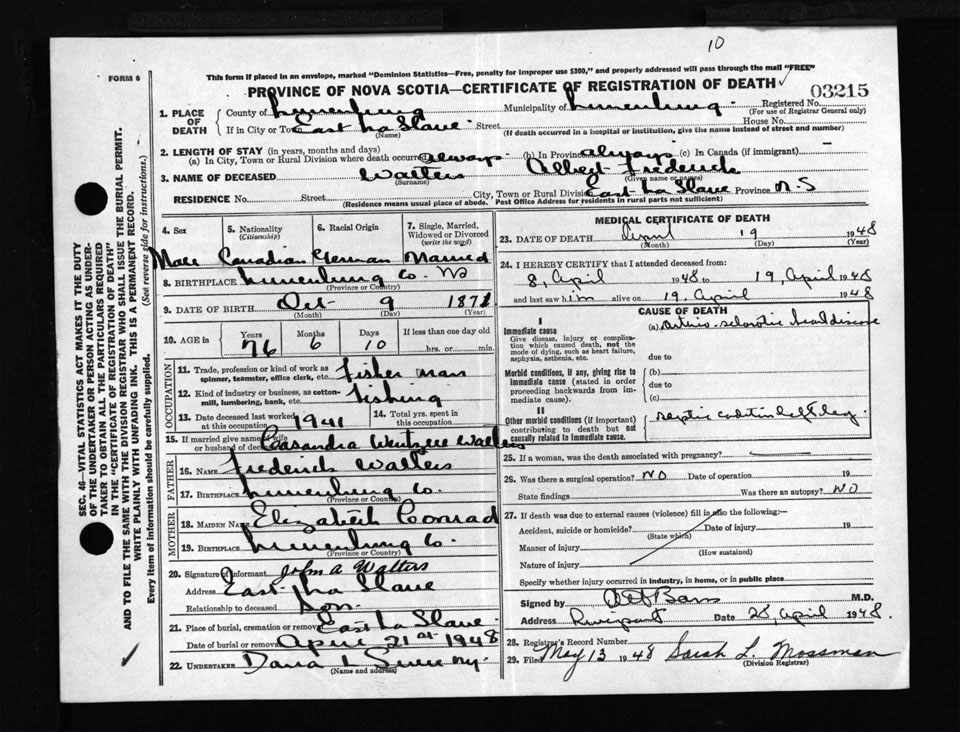 10
FORM 6
This form if placed in an envelope, marked "Dominion Statistics—Free, penalty for improper use $300," and properly addressed will pass through the mail "FREE"
PROVINCE OF NOVA SCOTIA—CERTIFICATE OF REGISTRATION OF DEATH
03215
1. PLACE OF DEATH
County of Lunenburg Municipality of Lunenburg Registered No.
(For use of Registrar General only)
If in City or Town East La Have Street House No.
(Name) (If death occurred in a hospital or institution, give the name instead of street and number)
2. LENGTH OF STAY (in years, months and days)
(a) In City, Town or Rural Division where death occurred always (b) In Province always (c) In Canada (if immigrant) —
3. NAME OF DECEASED Walters Albert Frederick
(Surname) (Given name or names)
RESIDENCE No. Street City, Town or Rural Division East La Have Province N.S
(Residence means usual place of abode. Post Office Address for residents in rural parts not sufficient)
4. Sex 5. Nationality (Citizenship) 6. Racial Origin 7. Single, Married, Widowed or Divorced (write the word)
Male Canadian German Married
8. BIRTHPLACE Lunenburg Co. NS
(Province or Country)
9. DATE OF BIRTH Oct 9 1871
(Month) (Day) (Year)
10. AGE in Years Months Days If less than one day old
76 6 10 hrs. or min.
OCCUPATION
11. Trade, profession or kind of work as spinner, teamster, office clerk, etc. Fisherman
12. Kind of industry or business, as cotton-mill, lumbering, bank, etc. Fishing
13. Date deceased last worked at this occupation 1941 14. Total yrs. spent in this occupation
15. If married give name of wife or husband of deceased Casandra Wentzell Walters
FATHER
16. NAME Frederick Walters
17. BIRTHPLACE Lunenburg Co.
(Province or Country)
MOTHER
18. MAIDEN NAME Elizabeth Conrad
19. BIRTHPLACE Lunenburg Co.
(Province or Country)
20. Signature of informant John A Walters
Address East La Have
Relationship to deceased Son
21. Place of burial, cremation or removal East La Have
Date of burial or removal April 21st 1948
22. UNDERTAKER Dana L
(Name and address)
MEDICAL CERTIFICATE OF DEATH
23. DATE OF DEATH April 19 1948
(Month) (Day) (Year)
24. I HEREBY CERTIFY that I attended deceased from:
8, April 1948 to 19, April 1948
and last saw him alive on 19, April 1948
CAUSE OF DEATH
I
Immediate cause
Give disease, injury or complication which caused death, not the mode of dying, such as heart failure, asphyxia, asthenia, etc.
(a) Arterio-sclerotic heart disease
due to
Morbid conditions, if any, giving rise to immediate cause (stated in order proceeding backwards from immediate cause)
(b)
due to
(c)
II
Other morbid conditions (if important) contributing to death but not causally related to immediate cause.
septic left leg
25. If a woman, was the death associated with pregnancy? —
26. Was there a surgical operation? NO Date of operation 19
State findings Was there an autopsy? NO
27. If death was due to external causes (violence) fill in also the following:—
Accident, suicide or homicide? Date of injury 19
(State which)
Manner of injury
(How sustained)
Nature of injury
Specify whether injury occurred in industry, in home, or in public place
Signed by M.D.
Address Riverport Date 28, April 1948
28. Registrar's Record Number
29. Filed May 13 1948 Sarah L. Mossman
(Division Registrar)
SEC. 46—VITAL STATISTICS ACT MAKES IT THE DUTY
OF THE UNDERTAKER OR PERSON ACTING AS UNDER-
TAKER TO OBTAIN ALL THE PARTICULARS REQUIRED
IN THE "CERTIFICATE OF REGISTRATION OF DEATH"
AND TO FILE THE SAME WITH THE DIVISION REGISTRAR WHO SHALL ISSUE THE BURIAL PERMIT.
WRITE PLAINLY WITH UNFADING INK. THIS IS A PERMANENT RECORD.
Every item of information should be carefully supplied. (See reverse side for instructions.)